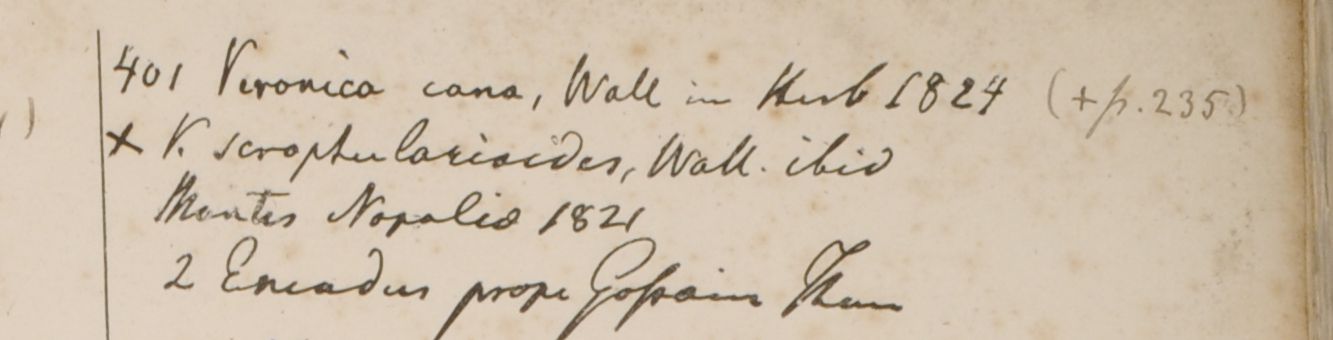 401 Veronica cana, Wall in Herb 1824 (+ p. 235)
x V. scrophularioides, Wall. ibid
Montes Nopalia 1821
2 Eneadus prope Gossain Than